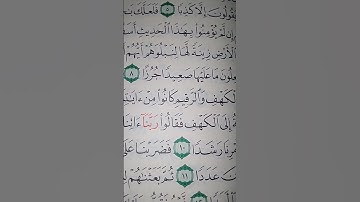 يَقُولُونَ إِلَّا كَذِبًا ٥ فَلَعَلَّكَ
إِن لَّمْ يُؤْمِنُوا۟ بِهَٰذَا ٱلْحَدِيثِ
ٱلْأَرْضِ زِينَةً لَّهَا لِنَبْلُوَهُمْ أَيُّهُمْ
عِلُونَ مَا عَلَيْهَا صَعِيدًا جُرُزًا ٨
ٱلْكَهْفِ وَٱلرَّقِيمِ كَانُوا۟ مِنْ ءَايَٰ
ةُ إِلَى ٱلْكَهْفِ فَقَالُوا۟ رَبَّنَآ ءَاتِنَا
مْرِنَا رَشَدًا ١٠ فَضَرَبْنَا عَلَىٰ
نَ عَدَدًا ١١ ثُمَّ بَعَثْنَٰهُمْ